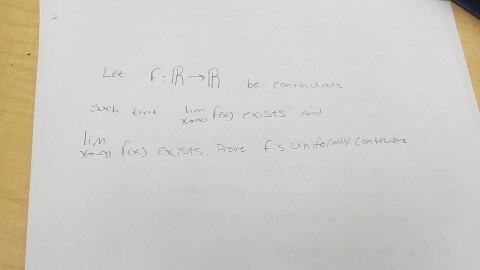 Let f: ℝ → ℝ be continuous
such that lim x→∞ f(x) exists and
lim x→-∞ f(x) exists. Prove f is uniformly continuous